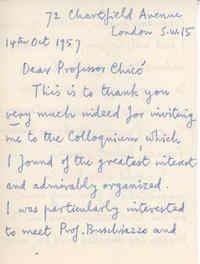 72 Chartfield Avenue
London S.W.15
14th Oct 1957
Dear Professor Chicó
This is to thank you
very much indeed for inviting
me to the Colloquium, which
I found of the greatest interest
and admirably organized.
I was particularly interested
to meet Prof. Buschiazzo and